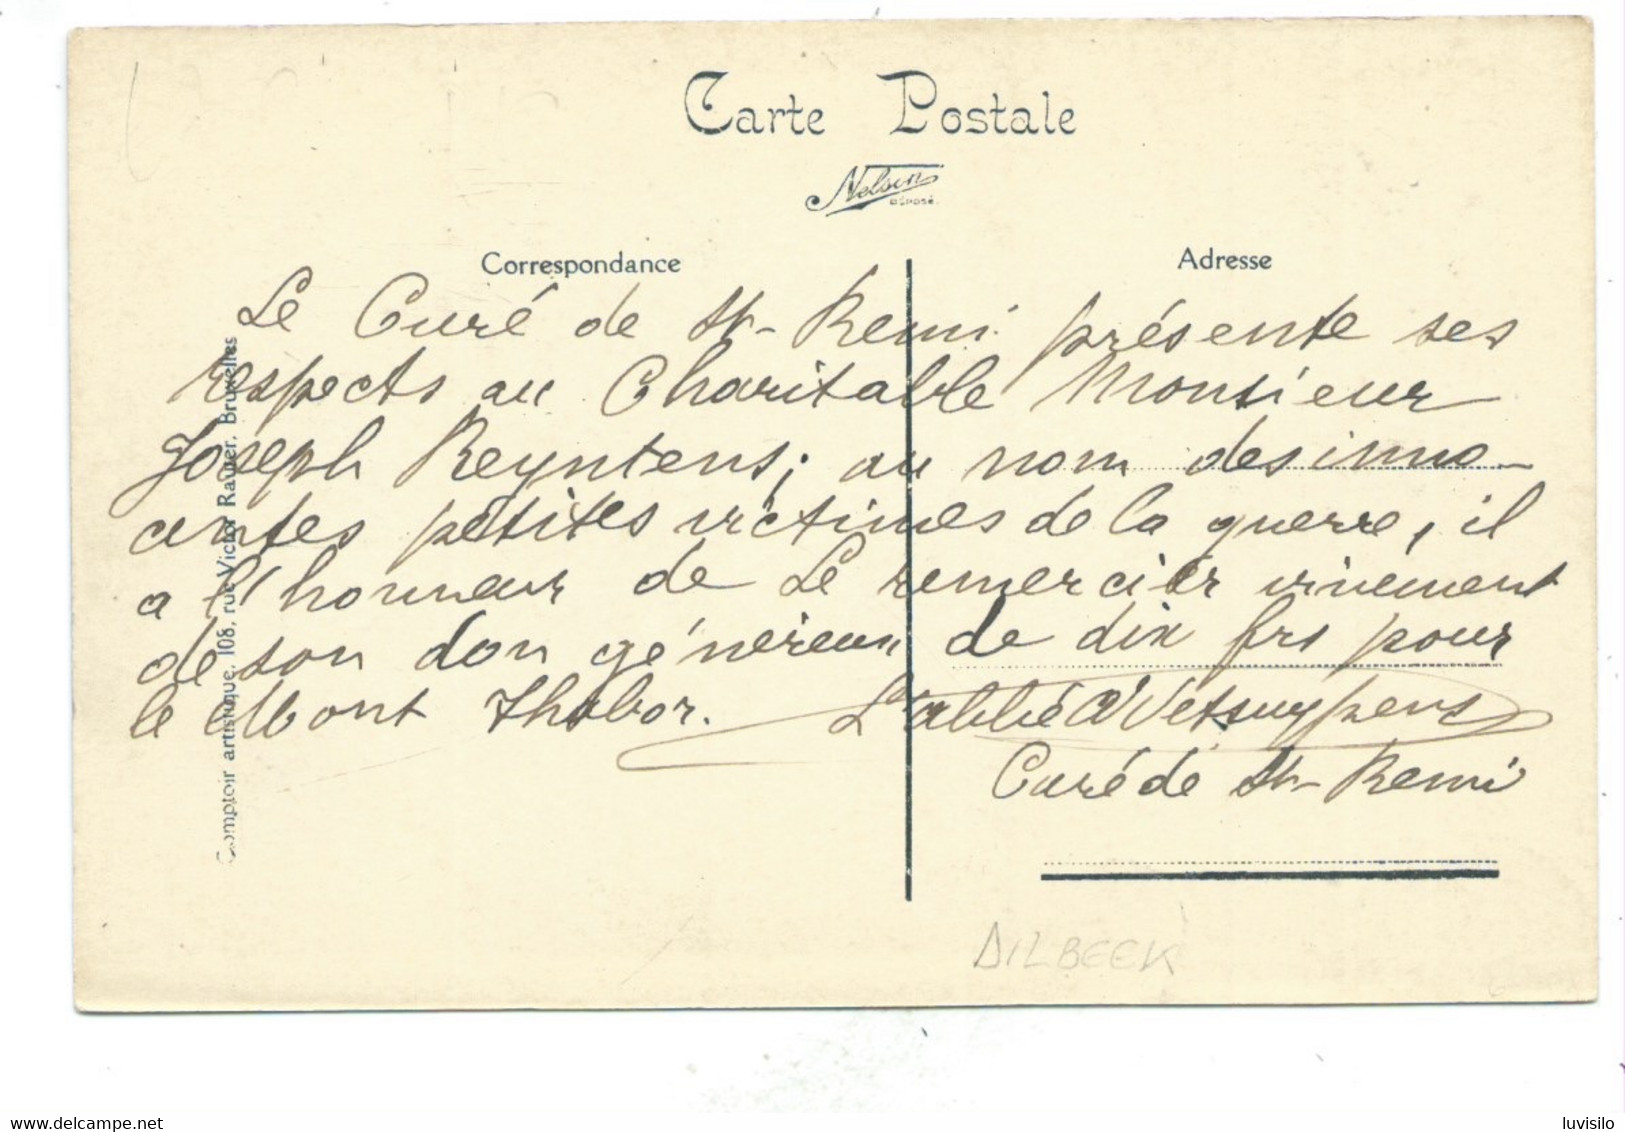 Carte Postale
Nelson
DÉPOSÉ.
Correspondance
Adresse
Le Curé de St-Remi présente ses
respects au Charitable Monsieur
Joseph Reyntens; au nom des inno-
centes petites victimes de la guerre, il
a l'honneur de Le remercier vivement
de son don généreux de dix frs pour
le Mont Thabor. L'abbé
Curé de St-Remi
Comptoir artistique, 108, rue Victor Rauter, Bruxelles
DILBEEK
delcampe.com
luvisilo